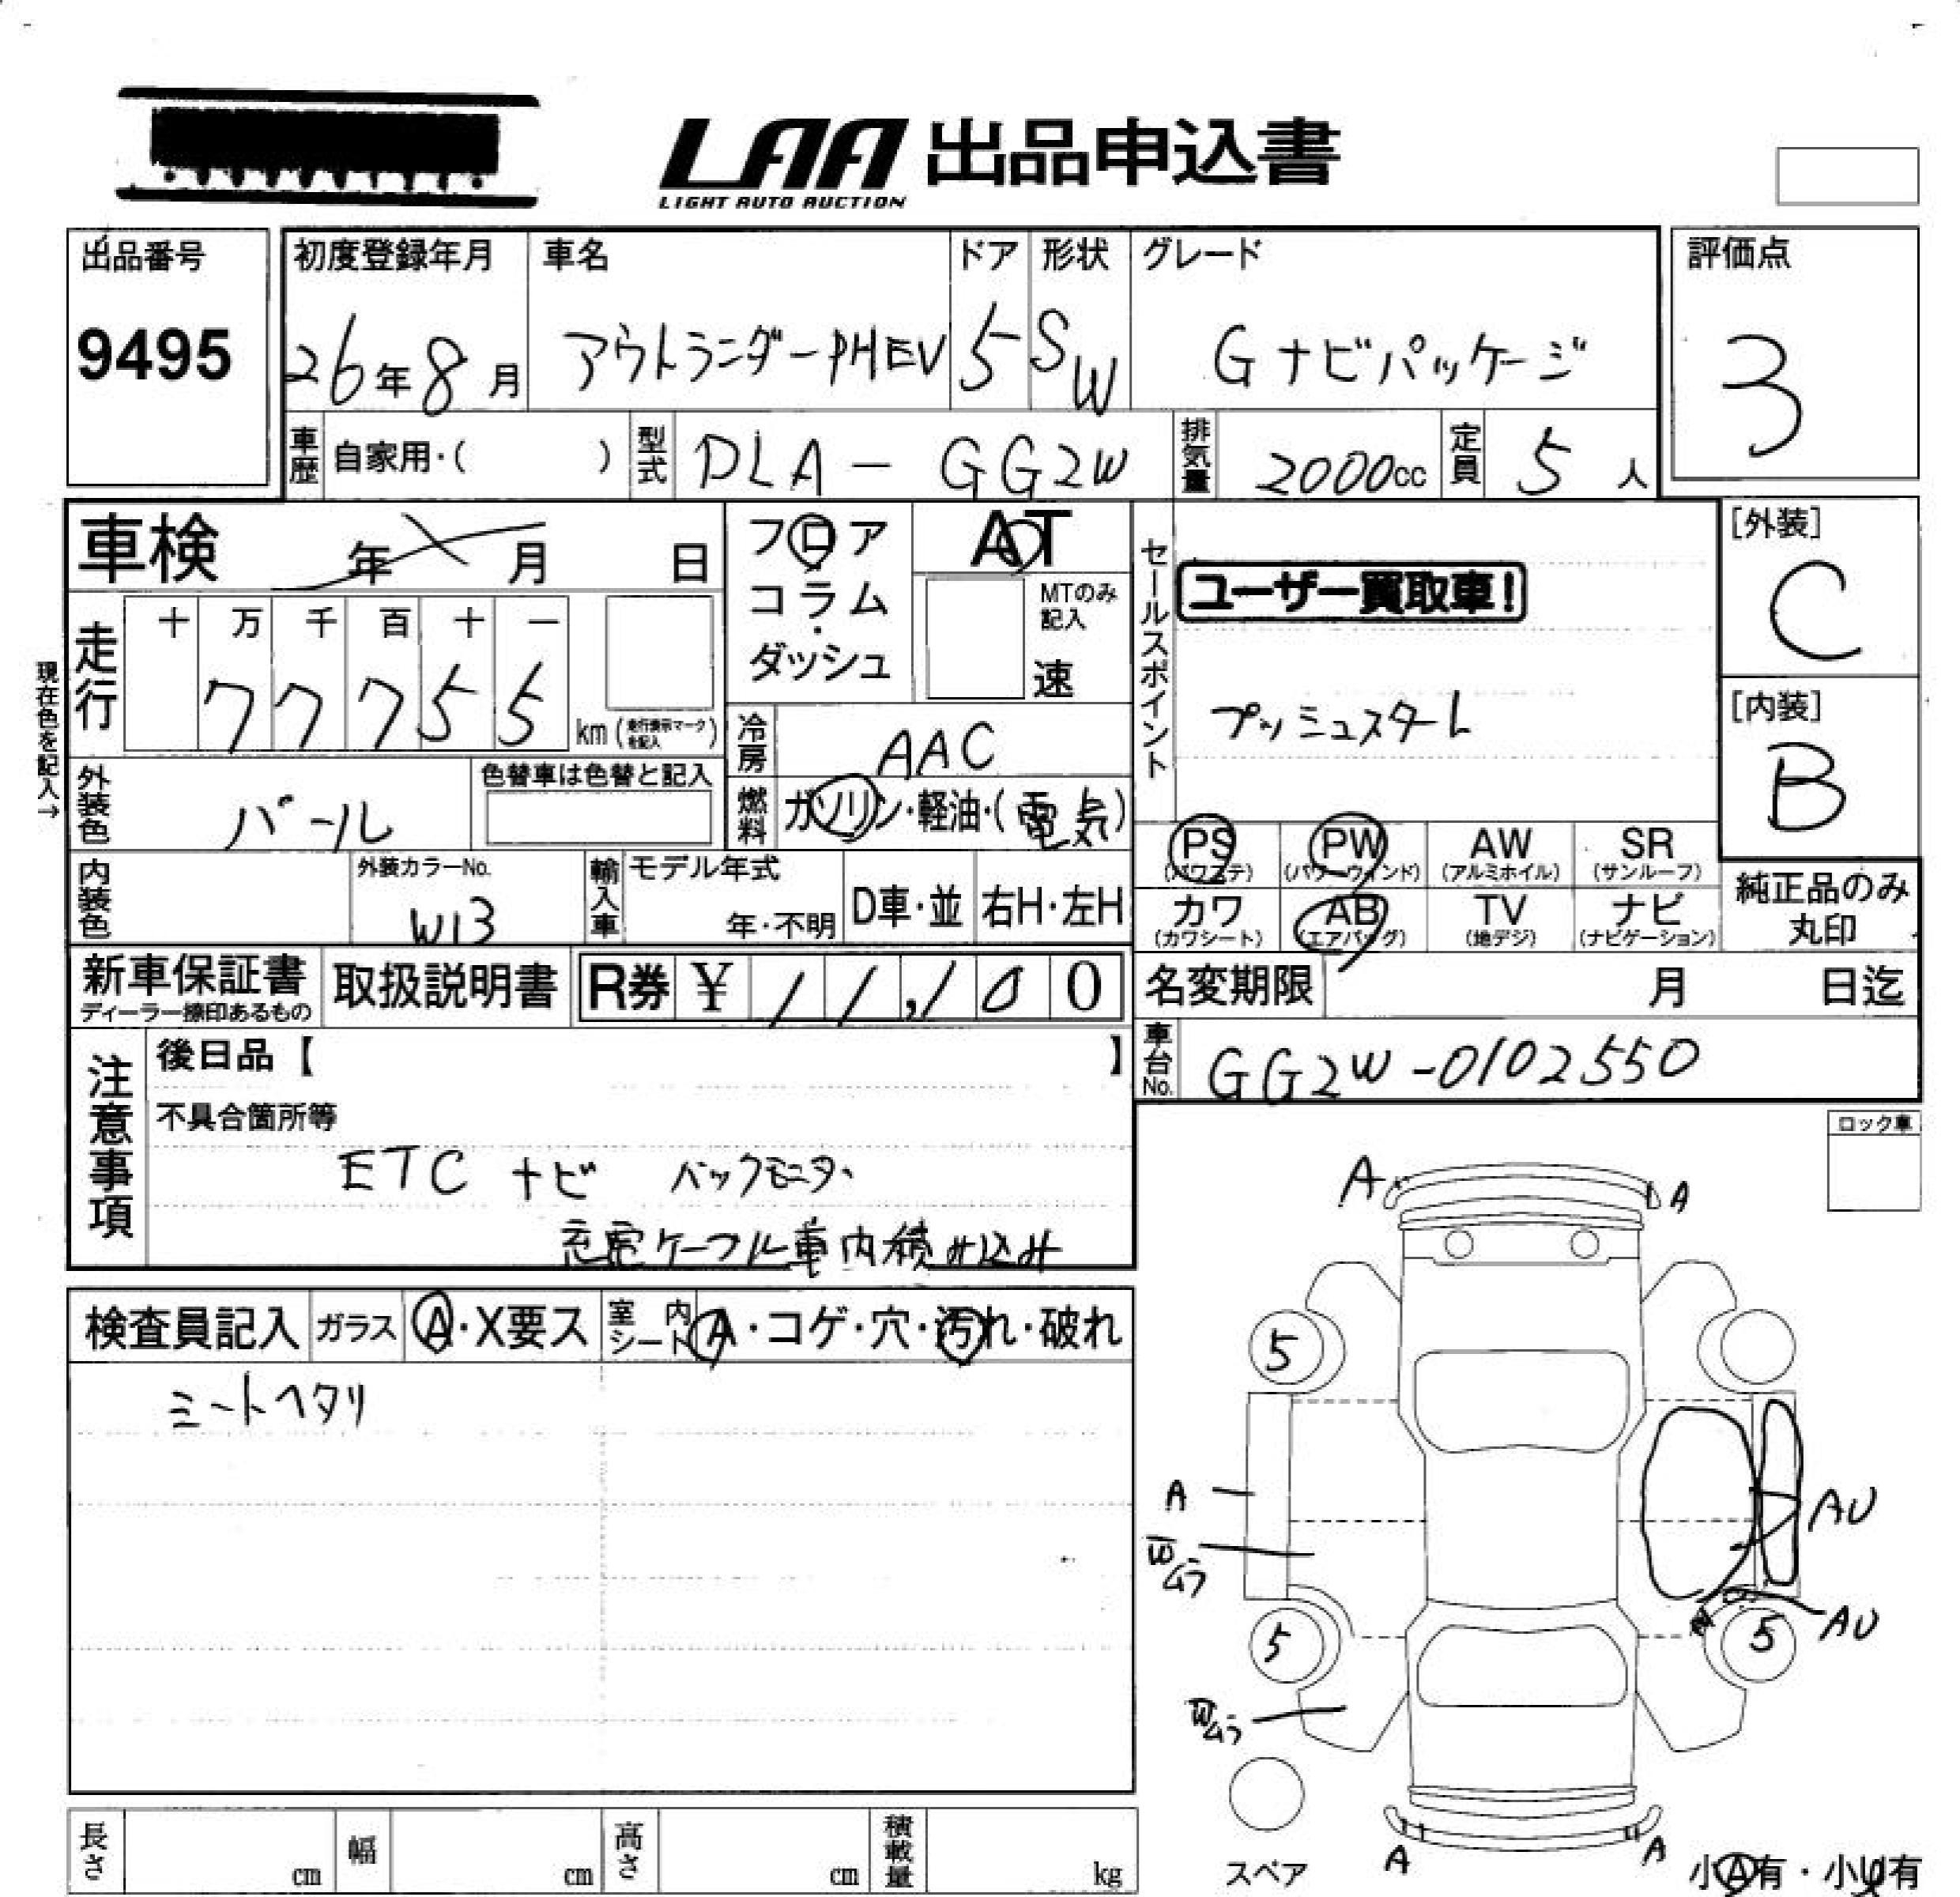 LAA 出品申込書
LIGHT AUTO AUCTION
出品番号
9495
初度登録年月
26年8月
車名
アウトランダーPHEV
ドア
5
形状
SW
グレード
Gナビパッケージ
評価点
3
車歴 自家用・( )
型式 DLA－GG2W
排気量 2000cc
定員 5人
車検 年 月 日
フロア
コラム
・
ダッシュ
AT
MTのみ
記入
速
セールスポイント
ユーザー買取車!
プッシュスタート
[外装]
C
[内装]
B
現在色を記入→
走行 十 万 千 百 十 一
77755
km (走行表示マークを記入)
冷房 AAC
燃料 ガソリン・軽油・(電気)
外装色 パール
色替車は色替と記入
PS
(パワステ)
PW
(パワーウインド)
AW
(アルミホイル)
SR
(サンルーフ)
カワ
(カワシート)
AB
(エアバッグ)
TV
(地デジ)
ナビ
(ナビゲーション)
純正品のみ
丸印
内装色
外装カラーNo.
W13
輸入車
モデル年式
年・不明
D車・並
右H・左H
新車保証書
ディーラー捺印あるもの
取扱説明書
R券 ¥ 11,100
名変期限 月 日迄
車台No. GG2W-0102550
注意事項
後日品【 】
不具合箇所等
ETC ナビ バックモニター
充電ケーブル車内積み込み
ロック車
検査員記入
ガラス A・X要ス
室内シート A・コゲ・穴・汚れ・破れ
シートヘタリ
A
A
5
A
AU
W
ムラ
5
5
AU
W
ムラ
スペア
A
A
小A有・小U有
長さ cm
幅 cm
高さ cm
積載量 kg